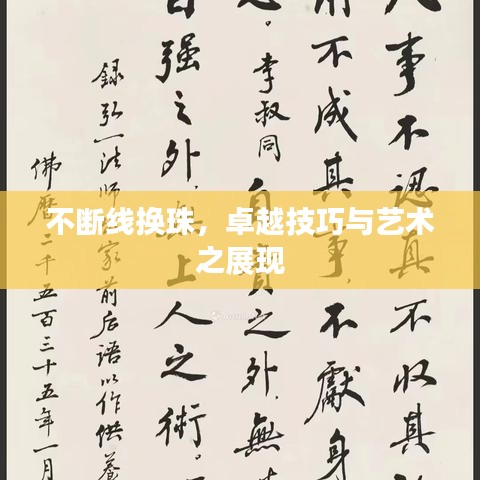 事不認真不收其
不成其事，不獻身
李叔同 自責之外，無
自強之外，無上人之術。
録弘一法師家前后語以作供養
佛曆二千五百三十五年一月
不断线换珠，卓越技巧与艺术
之展现